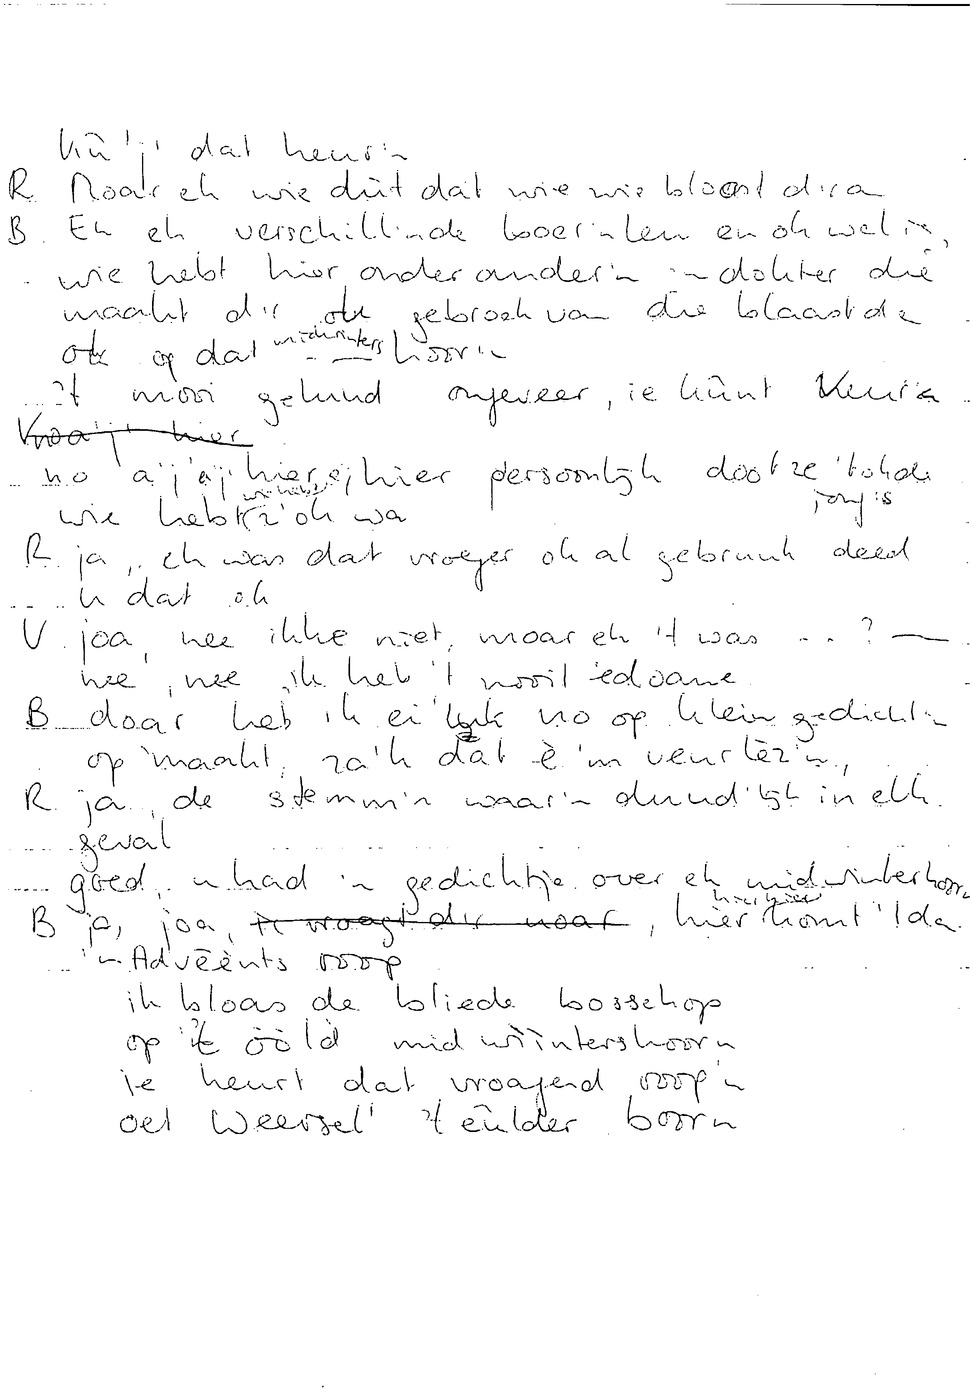 kû'j' dat heur'n
R. Moar eh wie dût dat wie wie bloast d'r a
B. Eh eh verschill'nde boer'inken en ok wel in,
wie hebt hier onder ander'n 'n dokter die
maakt d'r ok gebroek van die blaast de
ok op dat midwinters hoor'n
't mooi geluud ongeveer, ie kûnt heur'n
Kwoa'j' hier
no a'j' a'j' hier ej hier persoonlijk doot ze 't ok de
jong's
wie hebt wie hebt z' ok wa
R. ja, eh was dat vroeger ok al gebruuk deed
u dat ok
V. joa, nee ikke niet, moar eh 't was ... ? —
nee, nee ik heb 't nooit 'edoane
B daar heb ik ei'lijk no op klein gedicht'n
op 'maakt, za'k dat è'm veurlèz'n,
R. ja, de stemm'n waar'n duud'lijk in elk
geval
goed, u had 'n gedichtje over eh midwinterhoorn
B ja, joa, ik vroagt d'r noar, hier hier hier komt 't da
'n Advèènts roop
ik bloas de bliede bosschop
op 't ööld midwiintershoorn
ie heurt dat vroagend roop'n
oet Weersel' 't eûlder boorn